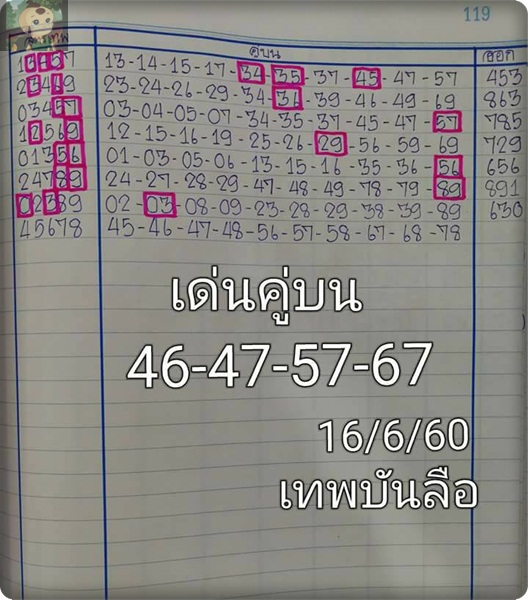 119
เลขเทพ
คู่บน ออก
13457 13-14-15-17-34-35-37-45-47-57 453
23469 23-24-26-29-34-36-39-46-49-69 863
03457 03-04-05-07-34-35-37-45-47-57 785
12569 12-15-16-19-25-26-29-56-59-69 729
01356 01-03-05-06-13-15-16-35-36-56 656
24789 24-27-28-29-47-48-49-78-79-89 891
02389 02-03-08-09-23-28-29-38-39-89 630
45678 45-46-47-48-56-57-58-67-68-78
เด่นคู่บน
46-47-57-67
16/6/60
เทพบันลือ